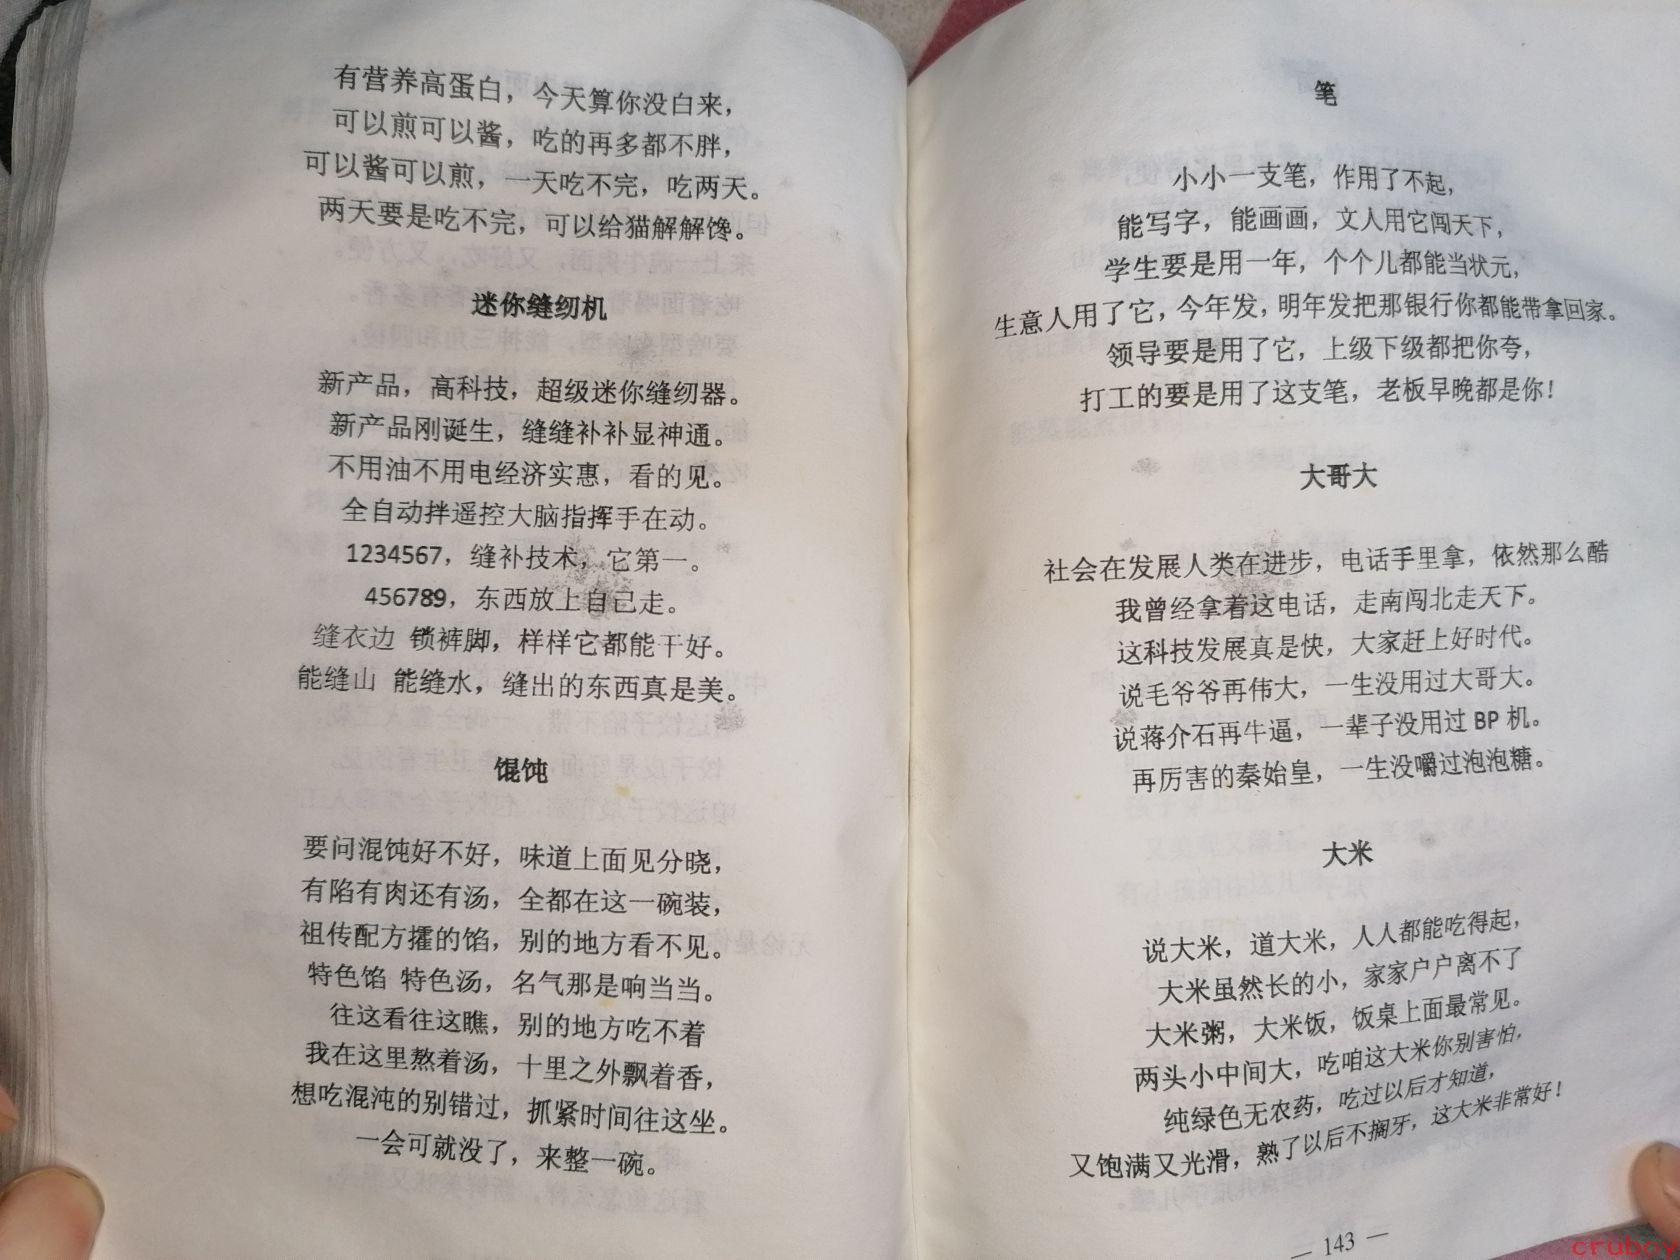 有营养高蛋白，今天算你没白来，
可以煎可以酱，吃的再多都不胖，
可以酱可以煎，一天吃不完，吃两天。
两天要是吃不完，可以给猫解解馋。
迷你缝纫机
新产品，高科技，超级迷你缝纫器。
新产品刚诞生，缝缝补补显神通。
不用油不用电经济实惠，看的见。
全自动拌遥控大脑指挥手在动。
1234567，缝补技术，它第一。
456789，东西放上自己走。
缝衣边 锁裤脚，样样它都能干好。
能缝山 能缝水，缝出的东西真是美。
馄饨
要问混饨好不好，味道上面见分晓，
有陷有肉还有汤，全都在这一碗装，
祖传配方㩴的馅，别的地方看不见。
特色馅 特色汤，名气那是响当当。
往这看往这瞧，别的地方吃不着
我在这里熬着汤，十里之外飘着香，
想吃混沌的别错过，抓紧时间往这坐。
一会可就没了，来整一碗。
笔
小小一支笔，作用了不起，
能写字，能画画，文人用它闯天下，
学生要是用一年，个个儿都能当状元，
生意人用了它，今年发，明年发把那银行你都能带拿回家。
领导要是用了它，上级下级都把你夸，
打工的要是用了这支笔，老板早晚都是你！
大哥大
社会在发展人类在进步，电话手里拿，依然那么酷
我曾经拿着这电话，走南闯北走天下。
这科技发展真是快，大家赶上好时代。
说毛爷爷再伟大，一生没用过大哥大。
说蒋介石再牛逼，一辈子没用过 BP 机。
再厉害的秦始皇，一生没嚼过泡泡糖。
大米
说大米，道大米，人人都能吃得起，
大米虽然长的小，家家户户离不了
大米粥，大米饭，饭桌上面最常见。
两头小中间大，吃咱这大米你别害怕，
纯绿色无农药，吃过以后才知道，
又饱满又光滑，熟了以后不搁牙，这大米非常好！
— 143 —